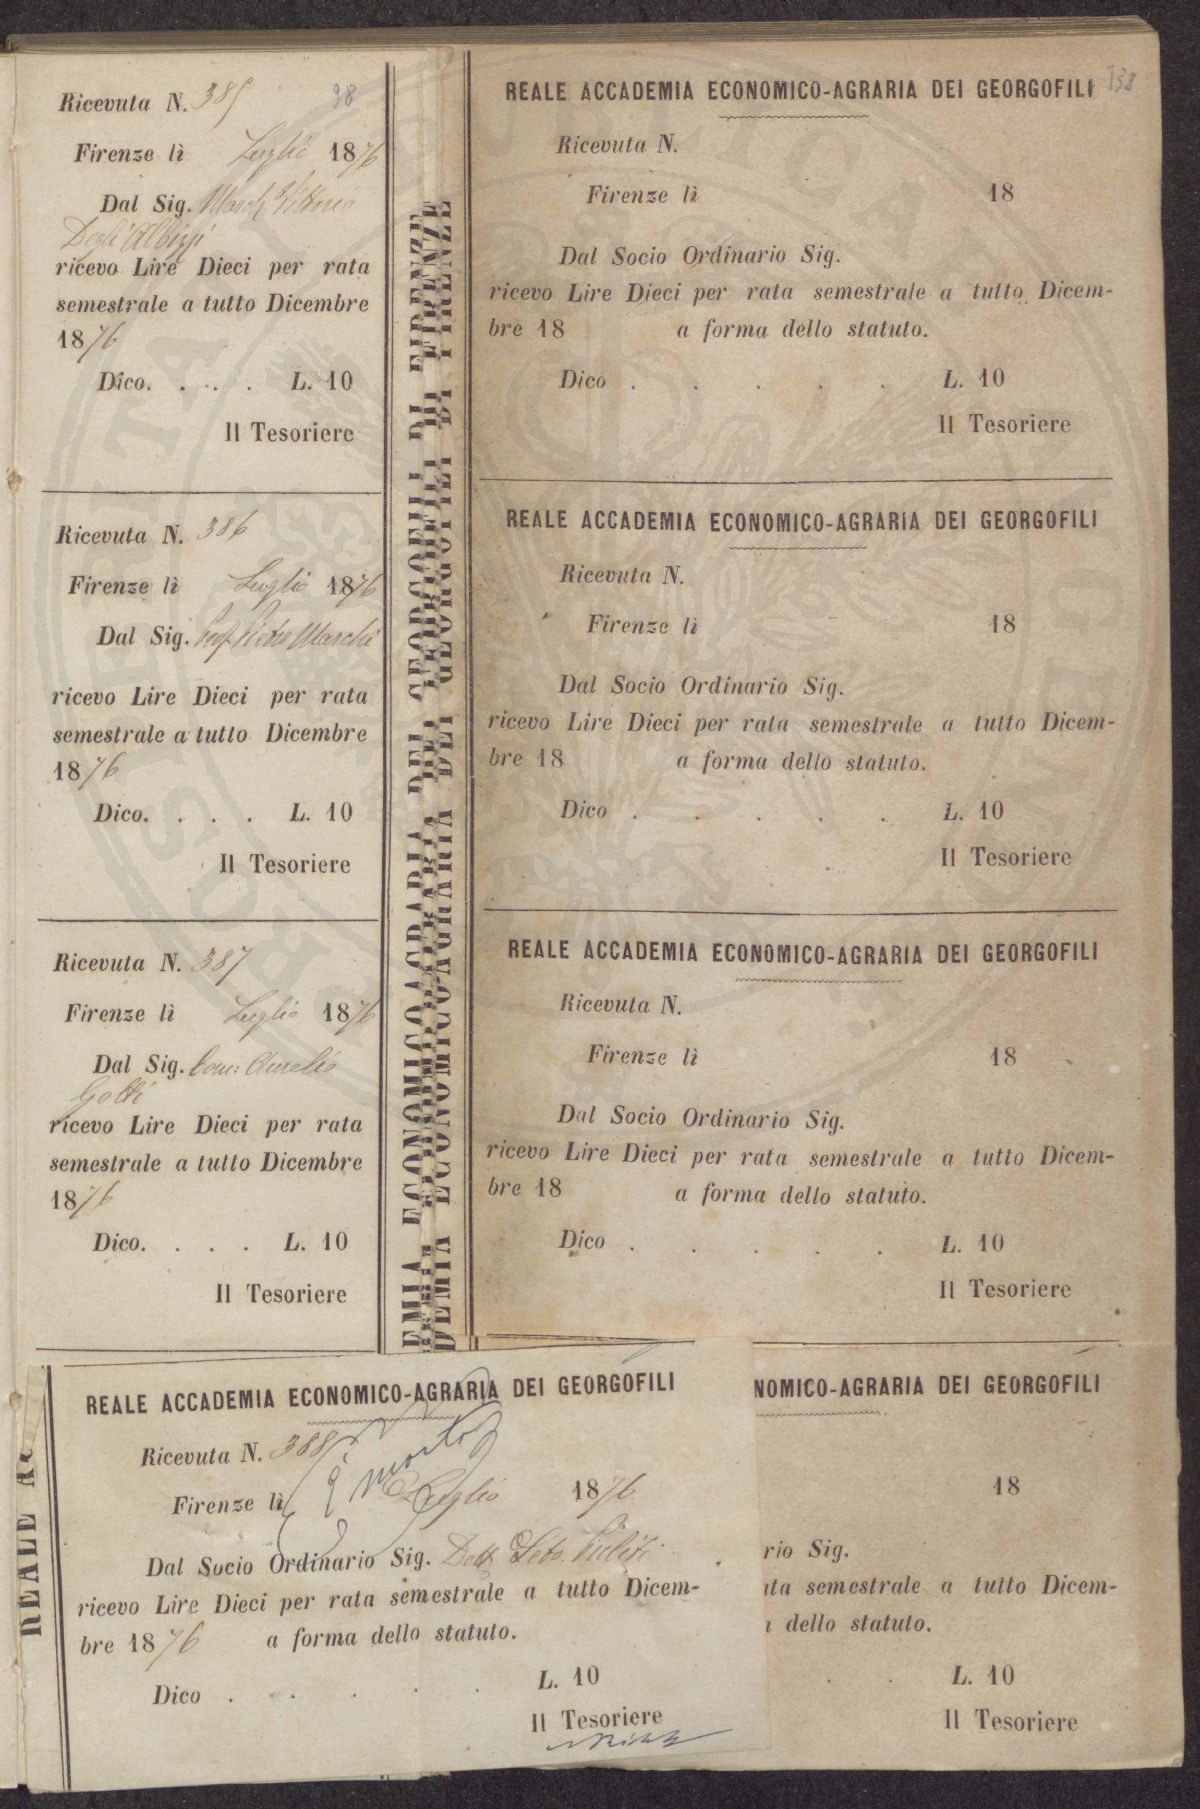 Ricevuta N. 385 98
Firenze lì Luglio 1876
Dal Sig. March Vittorio
Degli Albizzi
ricevo Lire Dieci per rata
semestrale a tutto Dicembre
1876
Dico. . . . L. 10
Il Tesoriere
Ricevuta N. 386
Firenze lì Luglio 1876
Dal Sig. Prof. Pietro Marchi
ricevo Lire Dieci per rata
semestrale a tutto Dicembre
1876
Dico. . . . L. 10
Il Tesoriere
Ricevuta N. 387
Firenze lì Luglio 1876
Dal Sig. Com: Aurelio
Gotti
ricevo Lire Dieci per rata
semestrale a tutto Dicembre
1876
Dico. . . . L. 10
Il Tesoriere
EMIA ECONOMICO-AGRARIA DEI GEORGOFILI DI FIRENZE
DEMIA ECONOMICO-AGRARIA DEI GEORGOFILI DI FIRENZE
REALE ACCADEMIA ECONOMICO-AGRARIA DEI GEORGOFILI 138
Ricevuta N.
Firenze lì 18
Dal Socio Ordinario Sig.
ricevo Lire Dieci per rata semestrale a tutto Dicem-
bre 18 a forma dello statuto.
Dico . . . . . L. 10
Il Tesoriere
REALE ACCADEMIA ECONOMICO-AGRARIA DEI GEORGOFILI
Ricevuta N.
Firenze lì 18
Dal Socio Ordinario Sig.
ricevo Lire Dieci per rata semestrale a tutto Dicem-
bre 18 a forma dello statuto.
Dico . . . . . L. 10
Il Tesoriere
REALE ACCADEMIA ECONOMICO-AGRARIA DEI GEORGOFILI
Ricevuta N.
Firenze lì 18
Dal Socio Ordinario Sig.
ricevo Lire Dieci per rata semestrale a tutto Dicem-
bre 18 a forma dello statuto.
Dico . . . . . L. 10
Il Tesoriere
REALE AC
REALE ACCADEMIA ECONOMICO-AGRARIA DEI GEORGOFILI
Ricevuta N. 388
è morto
Firenze lì Luglio 1876
Dal Socio Ordinario Sig. Dott.
ricevo Lire Dieci per rata semestrale a tutto Dicem-
bre 1876 a forma dello statuto.
Dico . . . . . L. 10
Il Tesoriere
NOMICO-AGRARIA DEI GEORGOFILI
18
rio Sig.
ata semestrale a tutto Dicem-
a dello statuto.
. . L. 10
Il Tesoriere